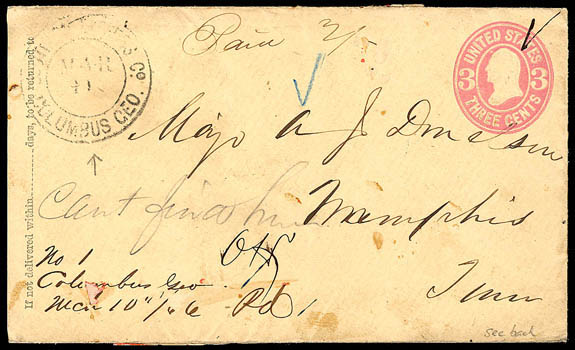 Paid 2/-
UNITED STATES
3 3
THREE CENTS
Co
MAR
COLUMBUS GEO.
If not delivered within days, to be returned to
Majr A J Donelson
Cant find him
Memphis
Tenn
No 1
Columbus Geo
Mch 10"/66
Pd 1
see back